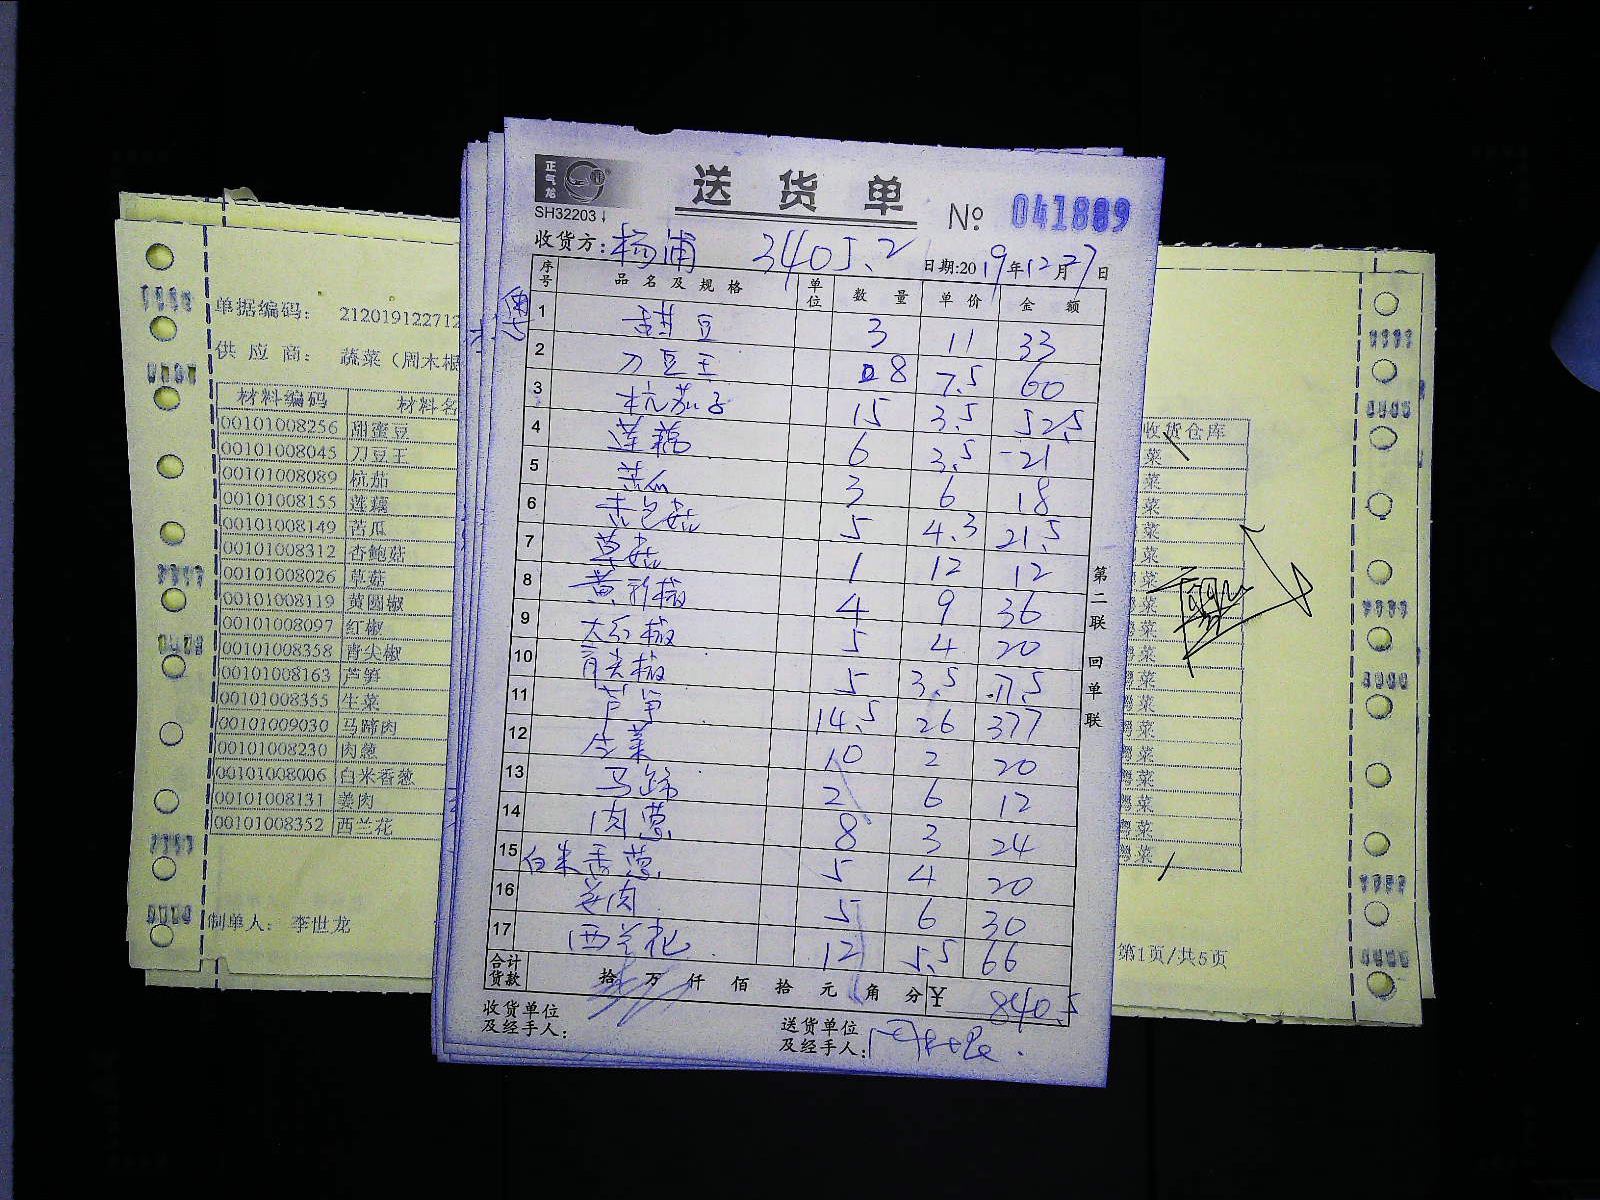 正气龙
送货单
SH32203
№ 041889
收货方: 杨浦 3405.2 日期:2019年12月27日
序号 品名及规格 单位 数量 单价 金额
1 甜豆 3 11 33
2 刀豆王 8 7.5 60
3 杭茄子 15 3.5 52.5
4 莲藕 6 3.5 21
5 苦瓜 3 6 18
6 杏包菇 5 4.3 21.5
7 草菇 1 12 12
8 黄彩椒 4 9 36
9 大红椒 5 4 20
10 青尖椒 5 3.5 17.5
11 芦笋 14.5 26 377
12 生菜 10 2 20
13 马蹄 2 6 12
14 肉葱 8 3 24
15 白米香葱 5 4 20
16 姜肉 5 6 30
17 西兰花 12 5.5 66
合计货款 拾 万 仟 佰 拾 元 角 分 ¥ 840.5
收货单位及经手人:
送货单位及经手人: 周木根
第二联 回单联
单据编码: 212019122712
供应商: 蔬菜(周木根
材料编码 材料名
00101008256 甜蜜豆
00101008045 刀豆王
00101008089 杭茄
00101008155 莲藕
00101008149 苦瓜
00101008312 杏鲍菇
00101008026 草菇
00101008119 黄圆椒
00101008097 红椒
00101008358 青尖椒
00101008163 芦笋
00101008355 生菜
00101009030 马蹄肉
00101008230 肉葱
00101008006 白米香葱
00101008131 姜肉
00101008352 西兰花
制单人: 李世龙
收货仓库
菜
菜
菜
菜
菜
菜
菜
菜
菜
菜
菜
菜
菜
菜
菜
菜
菜
第1页/共5页